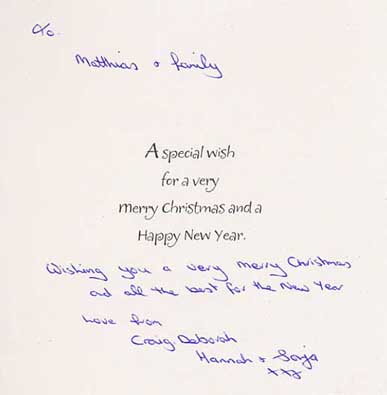 To.
Matthias & family
A special wish
for a very
merry Christmas and a
Happy New Year.
Wishing you a very merry Christmas
and all the best for the New Year
Love from
Craig Deborah
Hannah & Sonja
xxx